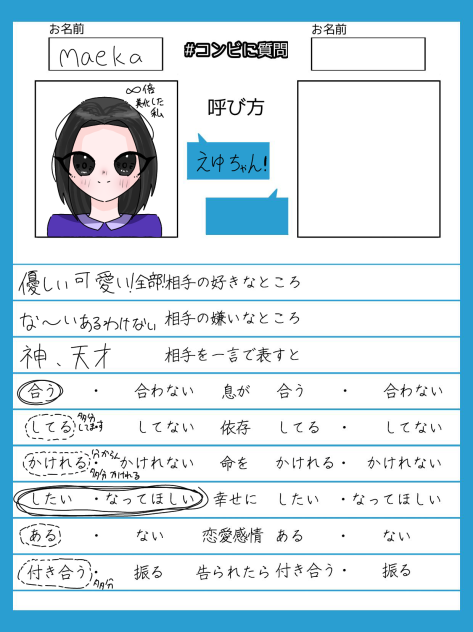 お名前
お名前
maeka
#コンビに質問
∞倍
美化した
私
呼び方
えゆちゃん!
優しい可愛い!全部!相手の好きなところ
な〜いあるわけない 相手の嫌いなところ
神、天才 相手を一言で表すと
合う ・ 合わない 息が 合う ・ 合わない
してる 多分してます してない 依存 してる ・ してない
かけれる・ 分からん 多分かけれる かけれない 命を かけれる・ かけれない
したい ・なってほしい 幸せに したい ・なってほしい
ある ・ ない 恋愛感情 ある ・ ない
付き合う・ 多分 振る 告られたら 付き合う・ 振る